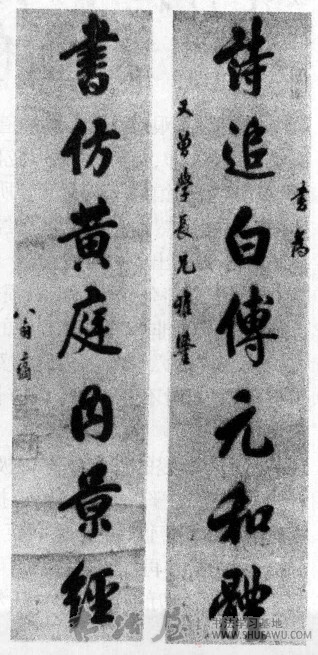 詩追白傅元和體
書
又曾學長兄雅鑒
書仿黃庭內景經
书法学习基地
WWW.SHUFAWU.COM